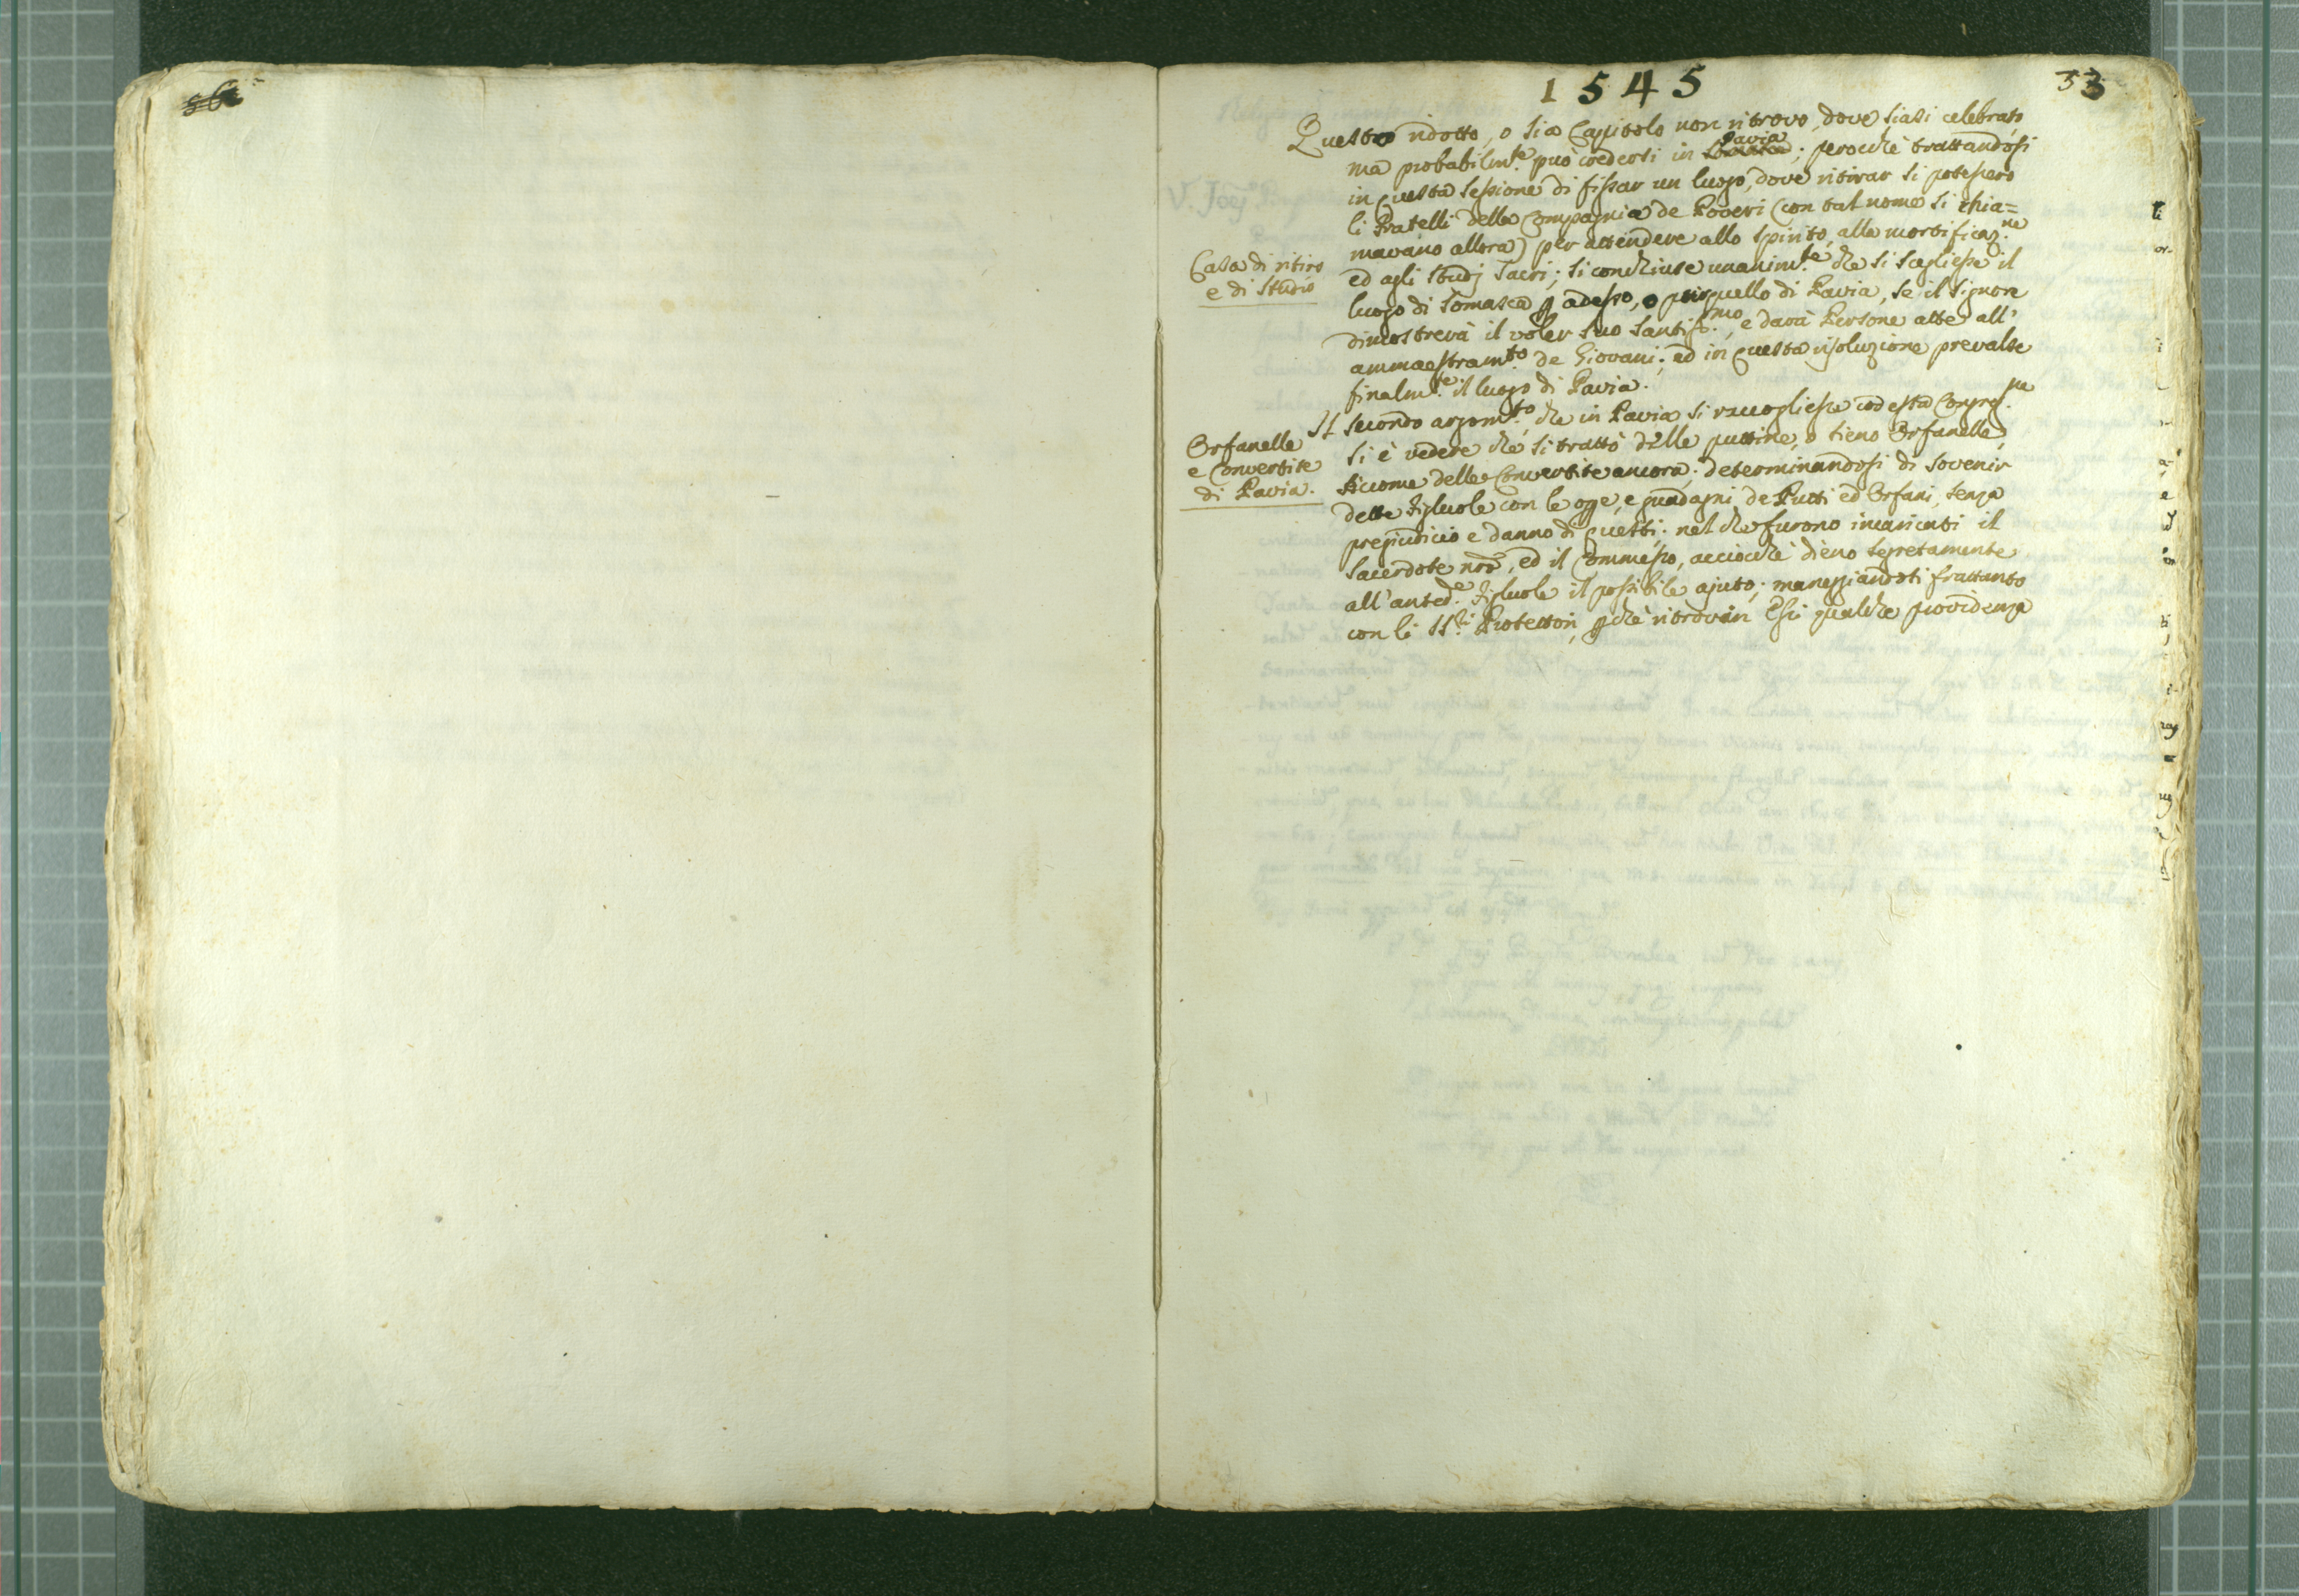 1545
33
Questo ridotto, o sia Capitolo non ritrovo, dove siasi celebrato,
ma probabilm.te può credersi in Pavia; perocchè trattandosi
in questa sessione di fissar un luogo, dove ritirar si potessero
li Fratelli della Compagnia de Poveri (con tal nome si chia=
mavano allora) per attendere allo spirito, alla mortificaz.ne
Casa di ritiro
e di Studio
ed agli Studj Sacri; si conchiuse unanim.te che si scegliesse il
luogo di Somasca p adesso, o poi quello di Pavia, se il Signore
dimostrerà il voler suo Santiss.mo, e darà Persone atte all'
ammaestram.to de Giovani; ed in questa risoluzione prevalse
finalm.te il luogo di Pavia.
Orfanelle
e Convertite
di Pavia.
Il secondo argom.to, che in Pavia si raccogliesse codesta Congreg.ne
si è vedere che si trattò delle puttine, o sieno Orfanelle,
siccome delle Convertite ancora; determinandosi di sovenir
dette figluole con le ope, e guadagni de Putti ed Orfani, senza
pregiudicio e danno di questi; nel che furono incaricati il
Sacerdote nrõ, ed il Commesso, acciocchè dieno segretamente
all'anted.e figluole il possibile ajuto; maneggiandosi frattanto
con li SS.ri Protettori, pchè ritrovin Essi qualche providenza